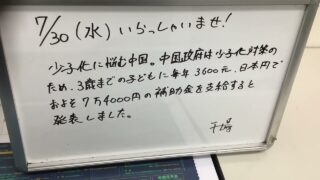 7/30(水)いらっしゃいませ!
少子化に悩む中国。中国政府は少子化対策の
ため、3歳までの子どもに毎年3600元、日本円で
およそ7万4000円の補助金を支給すると
発表しました。
干場